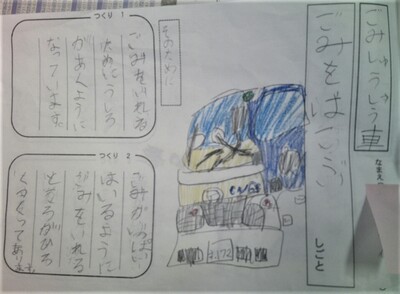 ごみしゅうしゅう車
なまえ
ごみをはこぶ
しごと
そのために
つくり 1
ごみをいれる
ためにうしろ
があくように
なっています。
つくり 2
ごみがいっぱい
はいるように
ごみをいれる
ところがひろ
くつくってあ
ます。